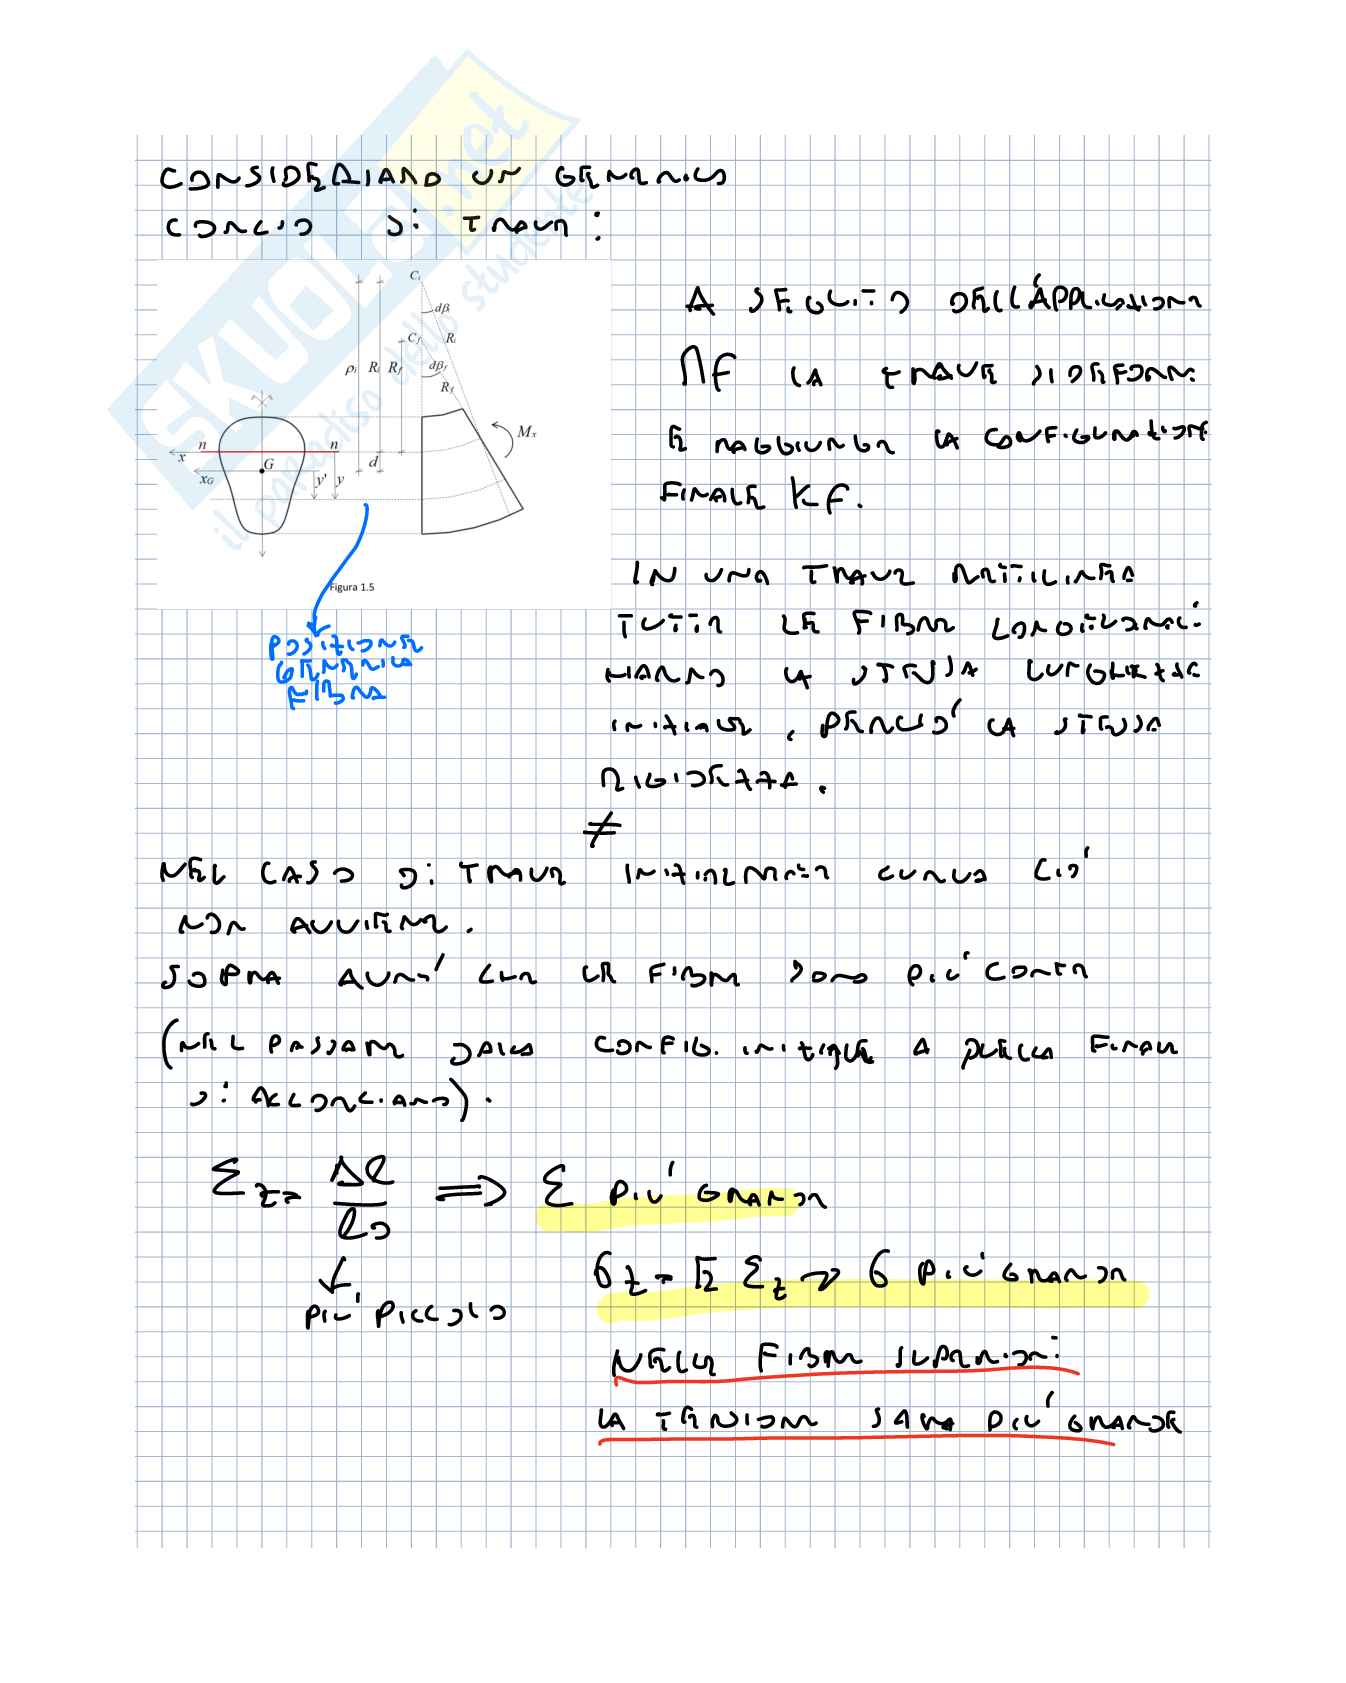 CONSIDERIAMO UN GENERICO
CONCIO DI TRAVE:
C_i
dβ_i
C_f
R_i
ρ_i R_i R_f
dβ_f
R_f
M_x
n n
x
G
d
x_G
y' y
Figura 1.5
POSIZIONE
GENERICA
FIBRA
A SEGUITO DELL'APPLICAZIONE
Mf LA TRAVE SI DEFORMA
E RAGGIUNGE LA CONFIGURAZIONE
FINALE Kf.
IN UNA TRAVE RETTILINEA
TUTTE LE FIBRE LONGITUDINALI
HANNO LA STESSA LUNGHEZZA
INIZIALE, PERCIO' LA STESSA
RIGIDEZZA.
≠
NEL CASO DI TRAVE INIZIALMENTE CURVA CIO'
NON AVVIENE.
SOPRA AVRO' CHE LE FIBRE SONO PIU' CORTE
(NEL PASSARE DALLA CONFIG. INIZIALE A QUELLA FINALE
SI ACCORCIANO).
ε_z = Δl / l_0 ⟹ ε PIU' GRANDE
↓
PIU' PICCOLO
σ_z = E ε_z → σ PIU' GRANDE
NELLE FIBRE SUPERIORI
LA TENSIONE SARA PIU' GRANDE
SKUOLA.net
il paradiso dello studente